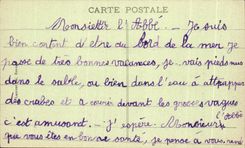 CARTE POSTALE
Monsieur l'Abbé - Je suis
bien content d'être au bord de la mer je
passe de très bonnes vacances, je vais pieds nus
dans le sable, ou bien dans l'eau à attrapper
des crabes et à courir devant les grosses vagues
c'est amusant. - J'espère Monsieur c'est
que vous êtes en bonne santé, je pense à vous